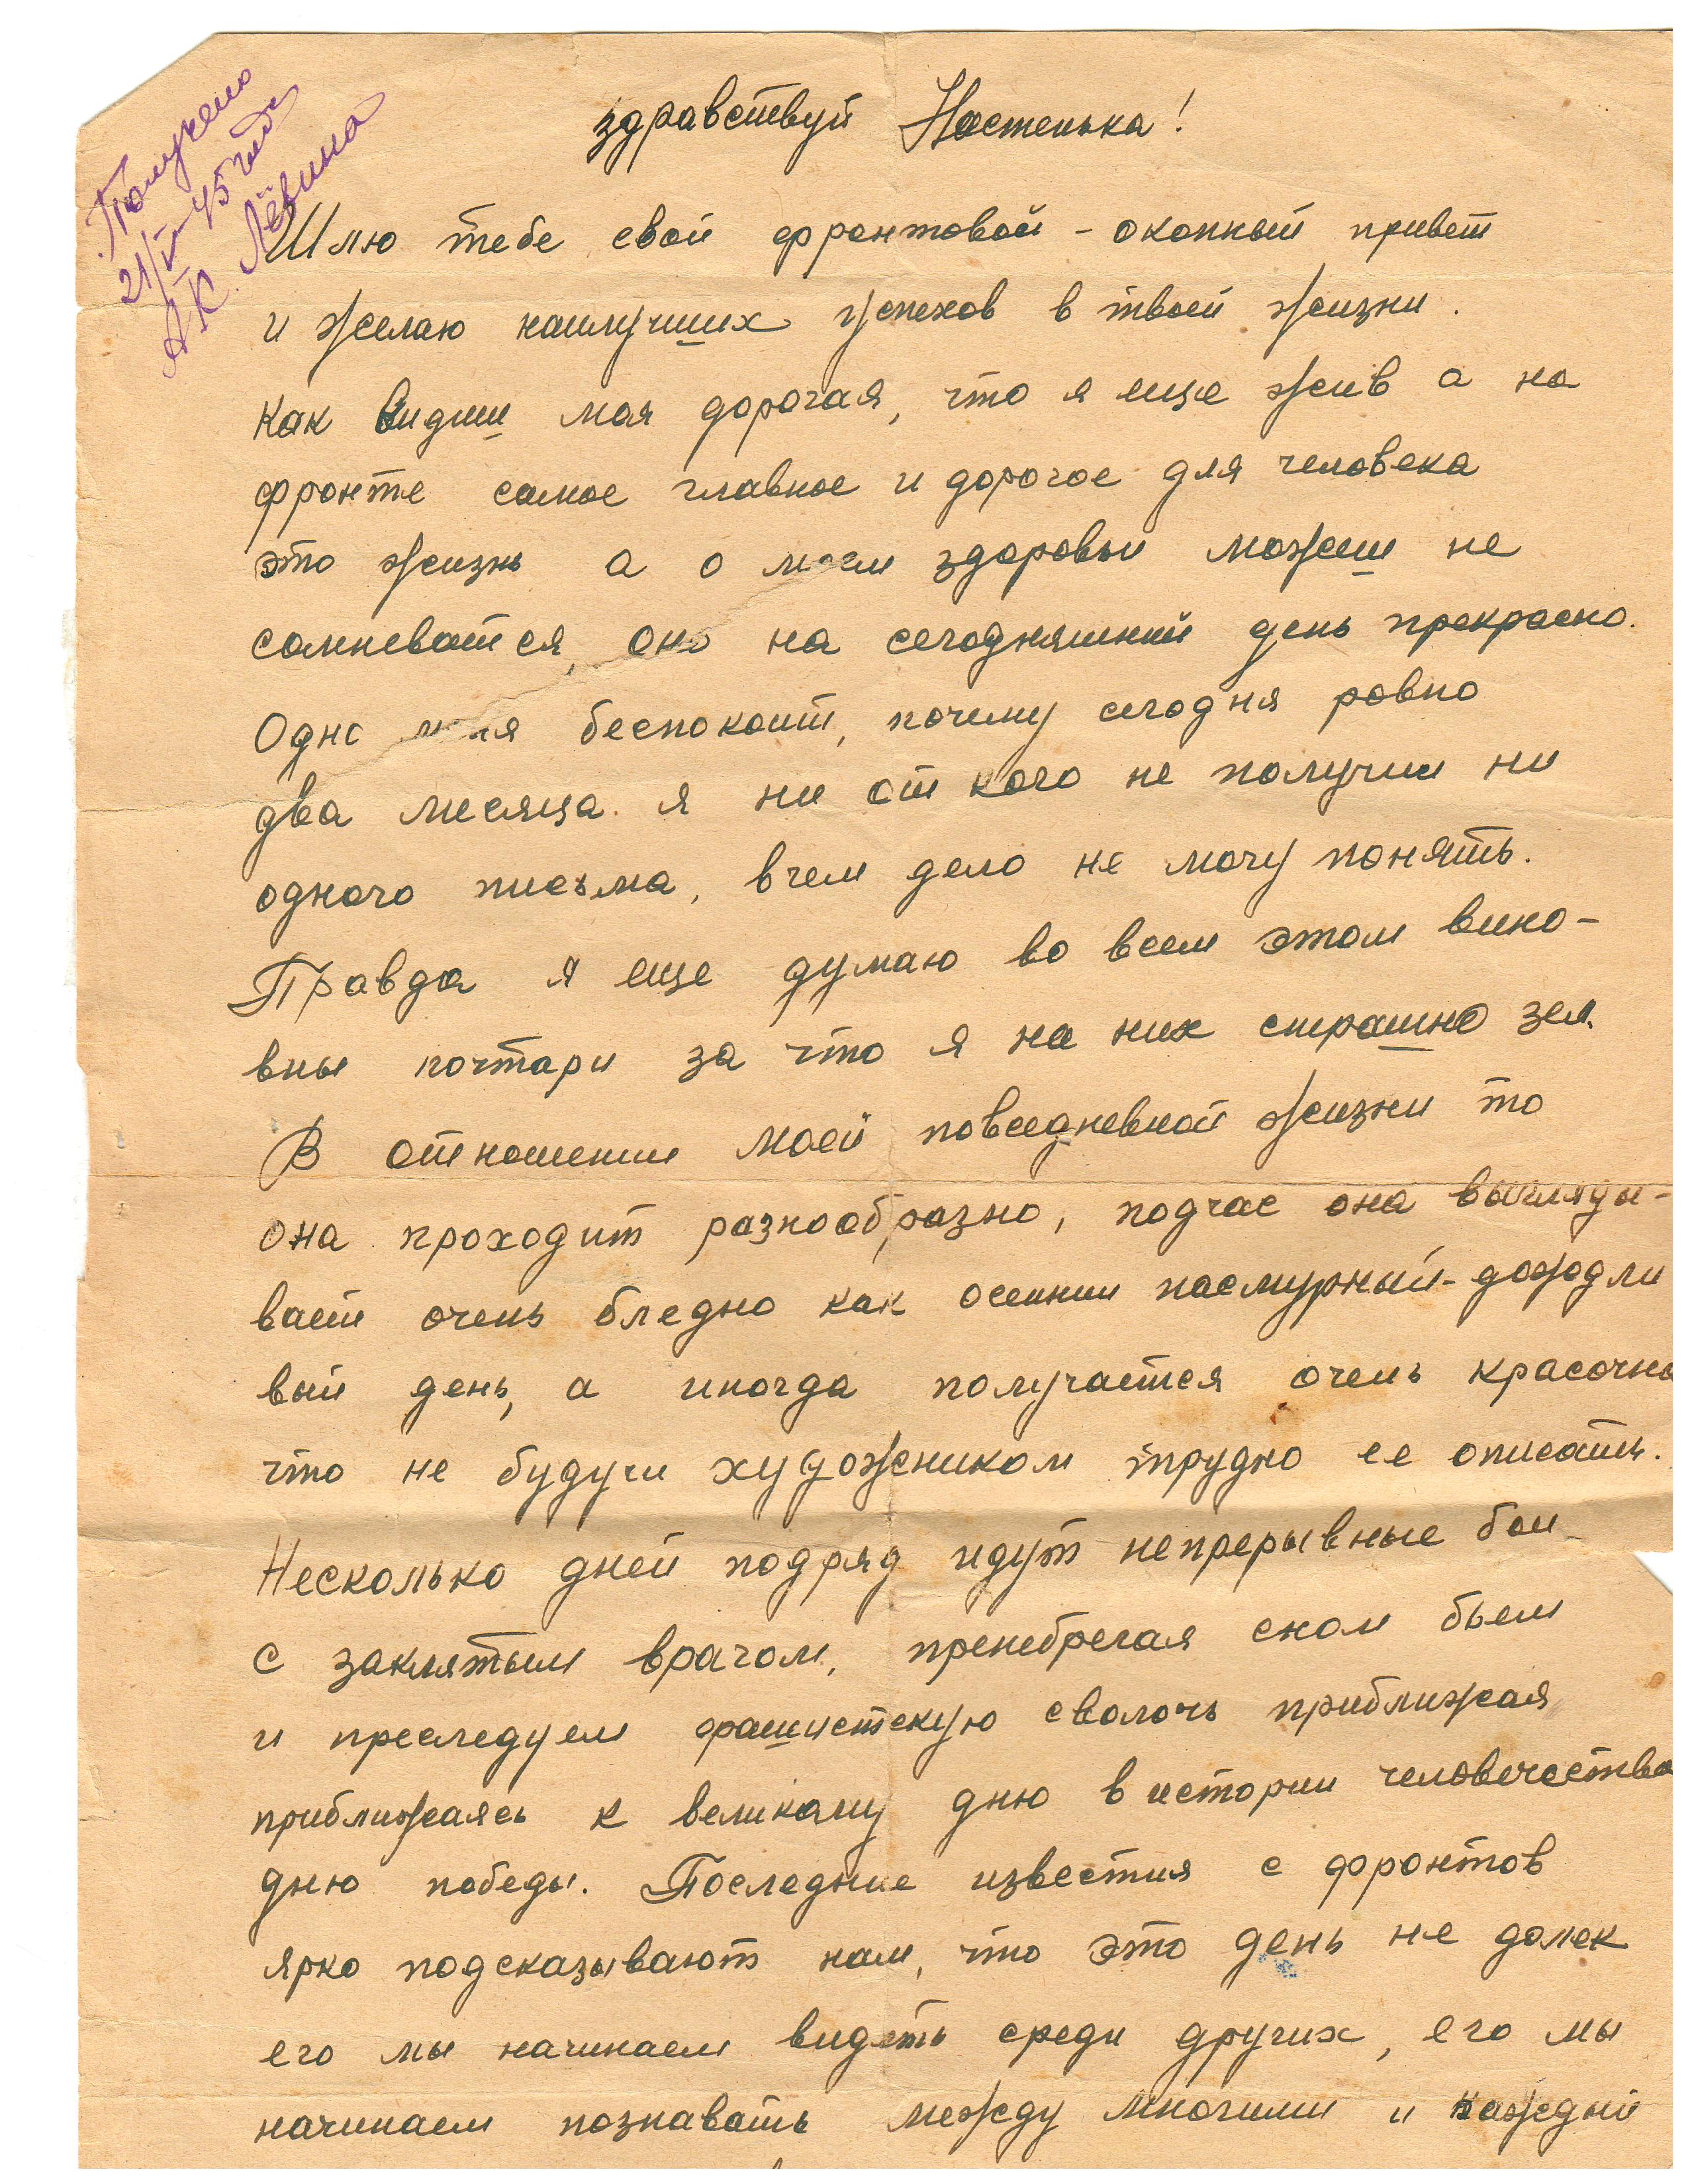 Получено
21/V-45 года
А.К. Лёвина
здравствуй Настенька!
Шлю тебе свой фронтовой - окопный привет
и желаю наилучших успехов в твоей жизни.
Как видиш моя дорогая, что я еще жив а на
фронте самое главное и дорогое для человека
это жизнь а о моем здоровьи можеш не
сомневатся, оно на сегодняшний день прекрасно.
Одно меня беспокоит, почему сегодня ровно
два месяца я ни от кого не получил ни
одного письма, вчем дело не могу понять.
Правда я еще думаю во всем этом вино-
вны почтари за что я на них страшно зел.
В отношении моей повседневной жизни то
она проходит разнообразно, подчас она выгляды-
вает очень бледно как осенний пасмурный-дождли
вый день, а иногда получается очень красочно
что не будучи художником трудно ее описать.
Несколько дней подряд идут непрерывные бои
с заклятым врагом, пренебрегая сном бьем
и преследуем фашистскую сволочь приближая
приближаясь к великому дню в истории человечества
дню победы. Последние известия с фронтов
ярко подсказывают нам, что это день не далек
его мы начинаем видеть среди других, его мы
начинаем познавать между многими и каждый